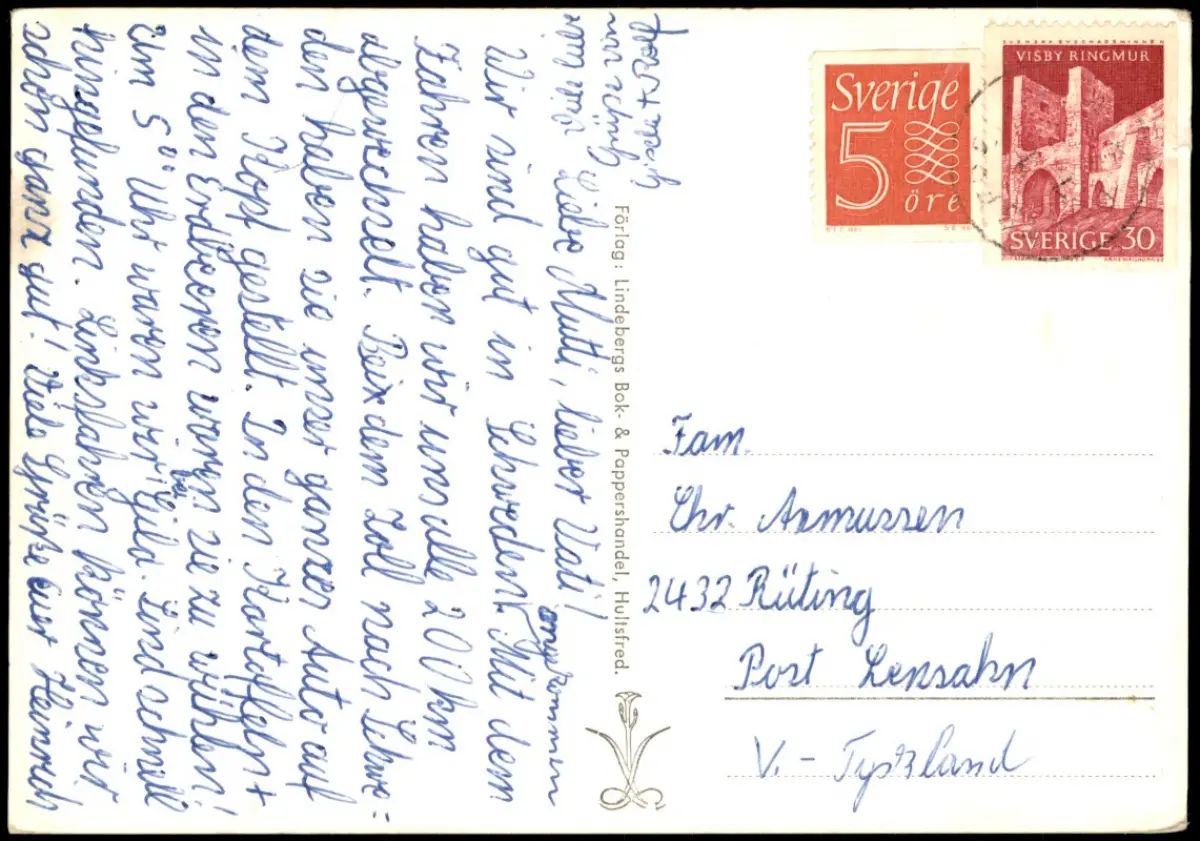 Liebe Mutti, lieber Vati!
Wir sind gut in Schweden angekommen. Mit dem
Fahren haben wir uns alle 200 km
abgewechselt. Bei dem Zoll nach Schwe=
den haben sie unser ganzes Auto auf
dem Kopf gestellt. In den Kartoffeln +
in den Erdbeeren waren sie zu wühlen!
Um 5°° Uhr waren wir bei Gila. Sind schnell
hingefunden. Linksfahren können wir
schon ganz gut! Viele Grüße Euer Heinrich
Förlag: Lindebergs Bok- & Pappershandel, Hultsfred.
Sverige
5
öre
VISBY RINGMUR
SVERIGE 30
Fam.
Chr. Asmussen
2432 Rüting
Post Lensahn
V. - Tyskland